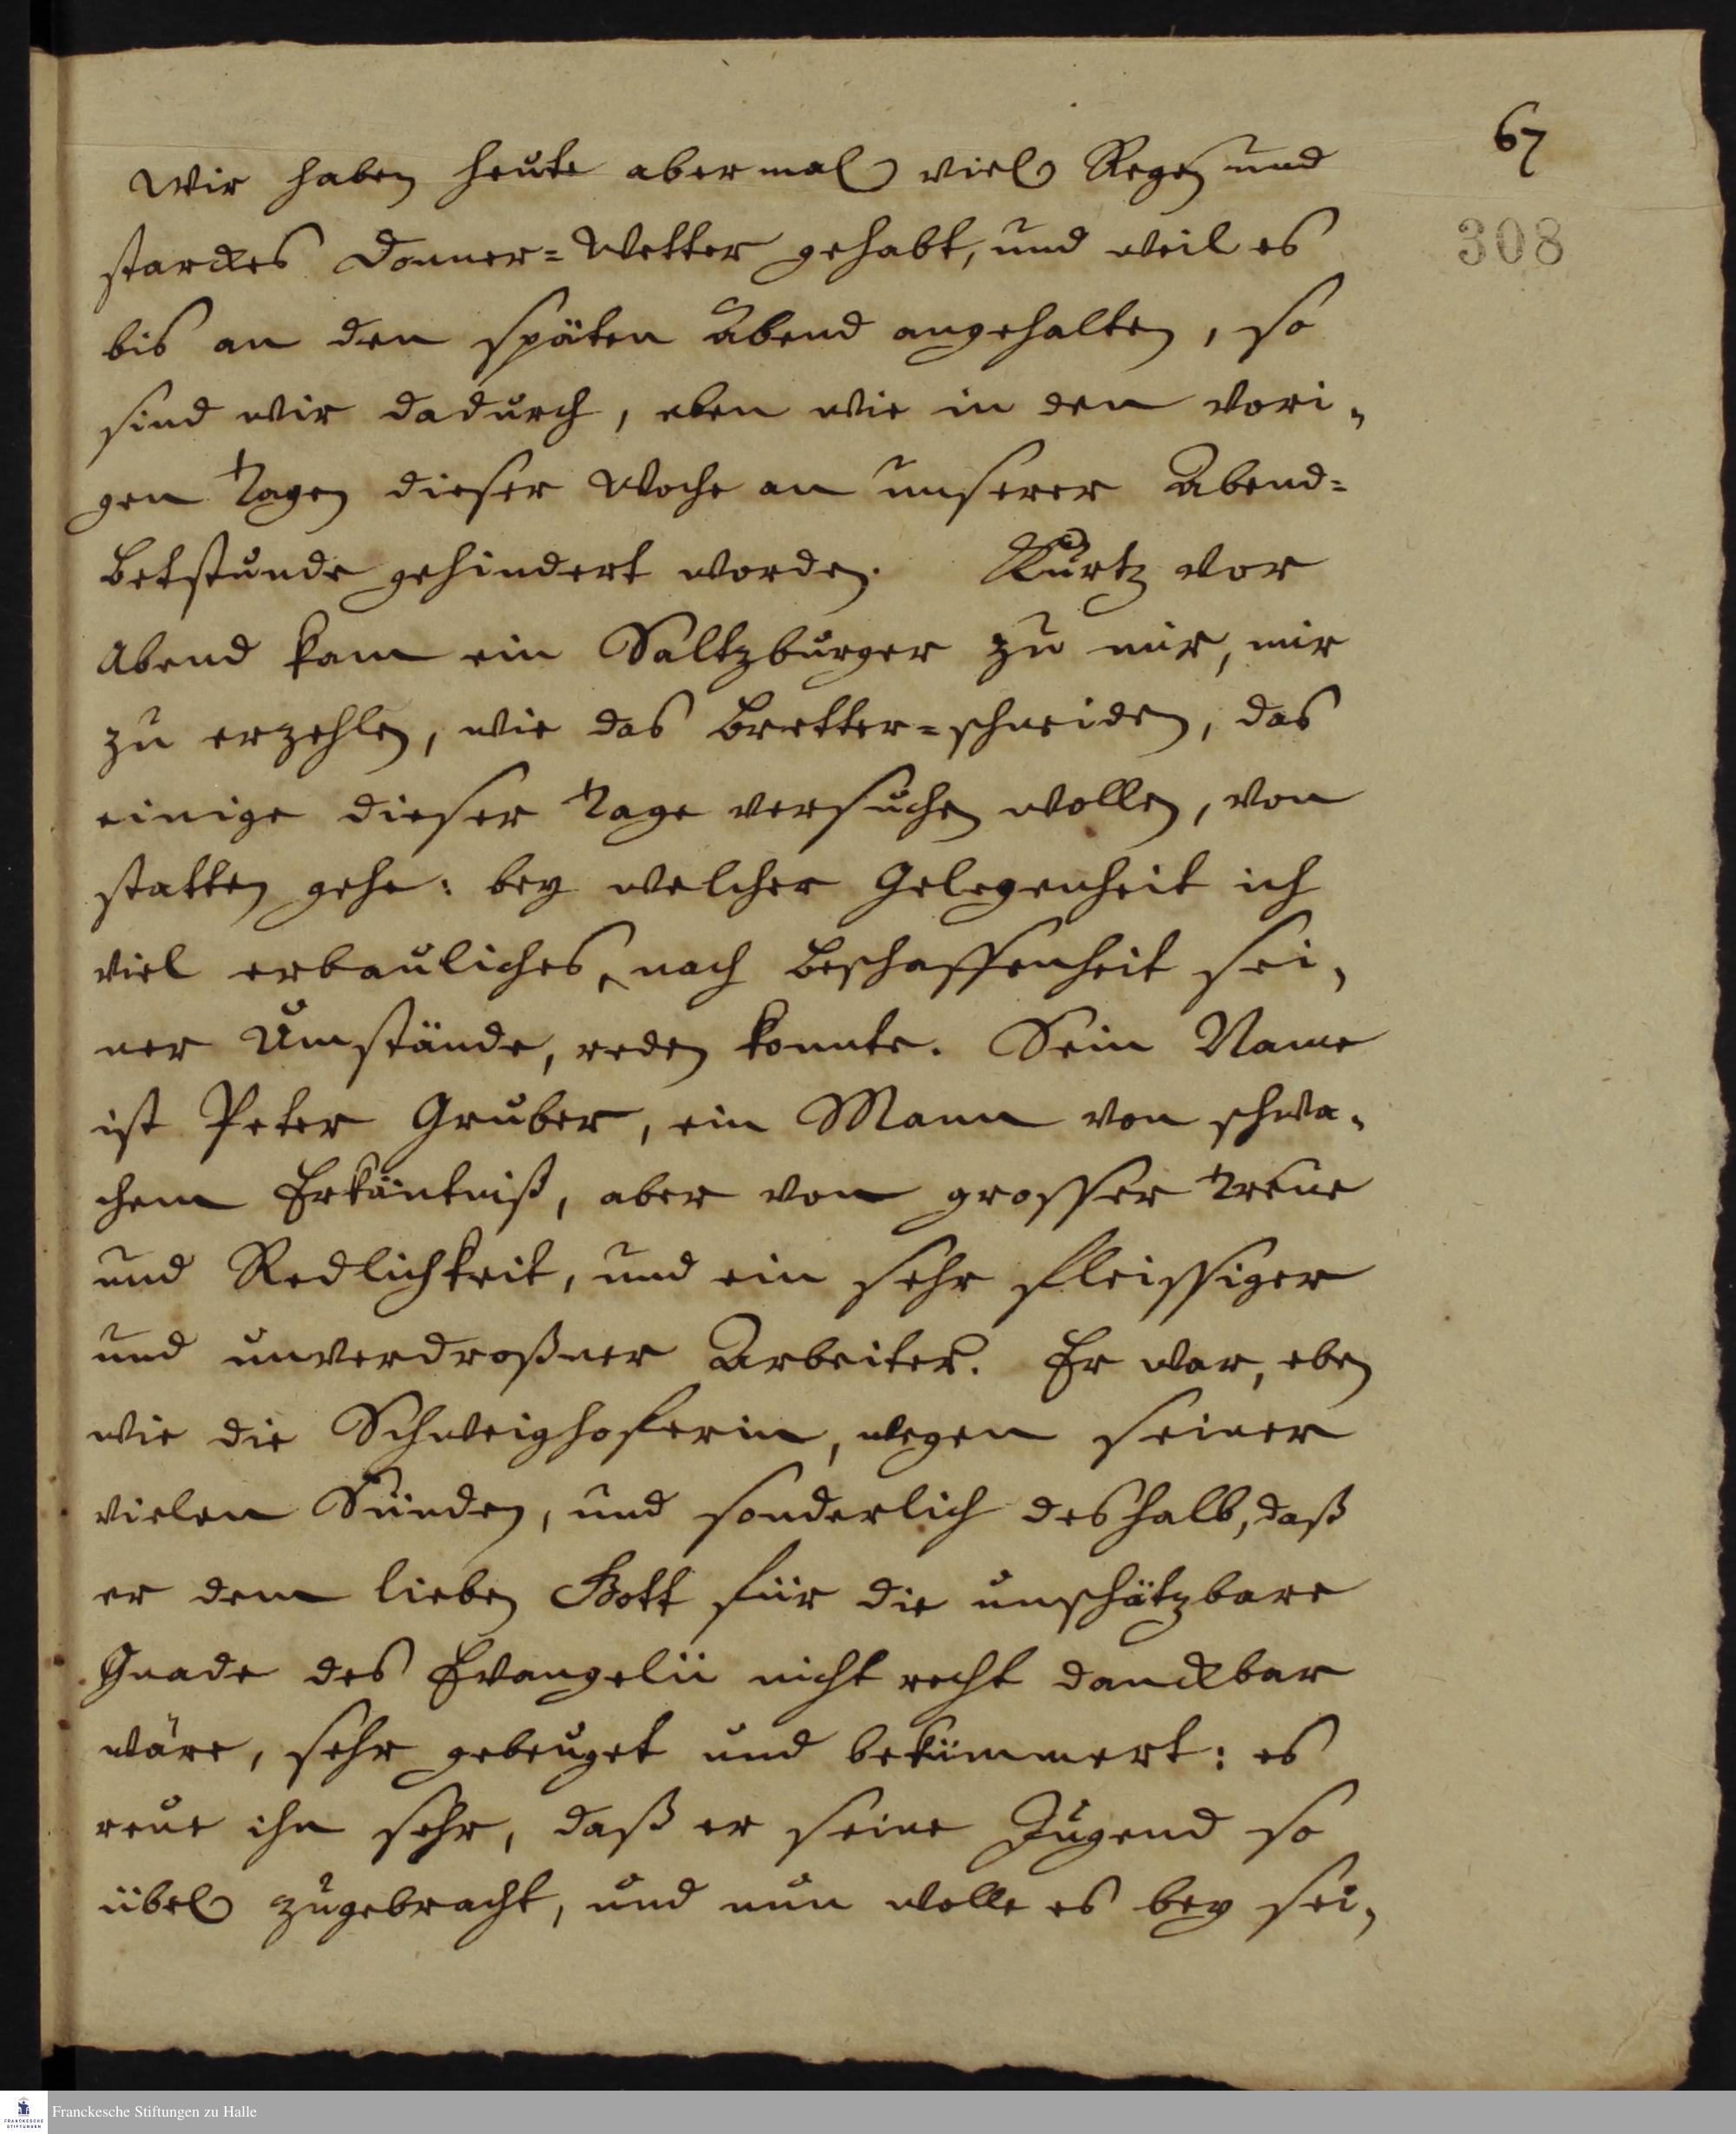 67
308
Wir haben heute abermal viel Regen und
starckes Donner=Wetter gehabt, und weil es
bis an den späten Abend angehalten, so
sind wir dadurch, eben wie in den vori„
gen Tagen dieser Woche an unserer Abend=
Betstunde gehindert worden. Kurtz vor
Abend kam ein Saltzburger zu mir, mir
zu erzehlen, wie das Bretter=schneiden, das
einige dieser Tage versuchen wollen, von
statten gehe: bey welcher Gelegenheit ich
viel erbauliches, nach Beschaffenheit sei„
ner Umstände, reden konnte. Sein Name
ist Peter Gruber, ein Mann von schwa„
chem Erkäntniß, aber von grosser Treue
und Redlichkeit, und ein sehr fleissiger
und unverdroßner Arbeiter. Er war, eben
wie die Schweighoferin, wegen seiner
vielen Sünden, und sonderlich deshalb, daß
er dem lieben Gott für die unschätzbare
Gnade des Evangelii nicht recht danckbar
wäre, sehr gebeuget und bekümmert: es
reue ihn sehr, daß er seine Jugend so
übel zugebracht, und nun wolle es bey sei„
FRANCKESCHE STIFTUNGEN
Franckesche Stiftungen zu Halle